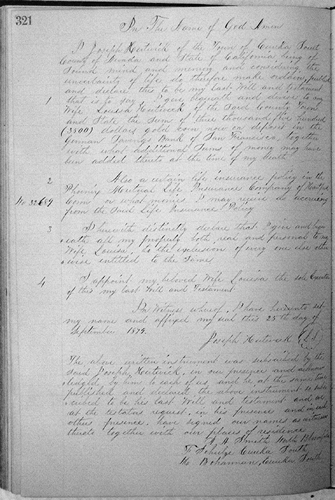 321
In The Name of God Amen
I Joseph Heitwick of the Town of Eureka South
County of Nevada and State of California being of
Sound mind and memory and considering the
uncertainty of life do therefore make ordain publish
and declare this to be my last Will and testament
1 that is to say I give bequeath and devise to my
Wife Louisa Heitwick of the Said County Town
and State the Sum of three thousand five hundred
(3500) dollars gold coin now on deposit in the
German Savings Bank of San Francisco together
with what additional Sums of money may have
been added thereto at the time of my death
2 Also a certain life insurance policy in the
No. 32659 Phoenix Mutual Life Insurance Company of Hartford
Conn or what monies I may receive accruing
from the Said Life Insurance Policy
3 I herewith distinctly declare that I give and bequeath
all my property both real and personal to my
Wife Louisa to the exclusion of any one else other
wise entitled to the Same
4 I appoint my beloved Wife Louisa the sole Executor
of this my last Will and Testament
In Witness whereof, I have hereunto set
my name and affixed my seal this 25th day of
September 1879.
Joseph Heitwick
The above written instrument was subscribed by the
Said Joseph Heitwick, in our presence and acknow
ledged by him to each of us and he at the same time
published and declared the above instrument so sub
scribed to be his last Will and testament and we
at the testators request, in his presence and in each
others presence, have signed our names as witnesses
thereto together with our places of residence
Smith North Bloomfield
Schulze Eureka South
Bohanna, Eureka South